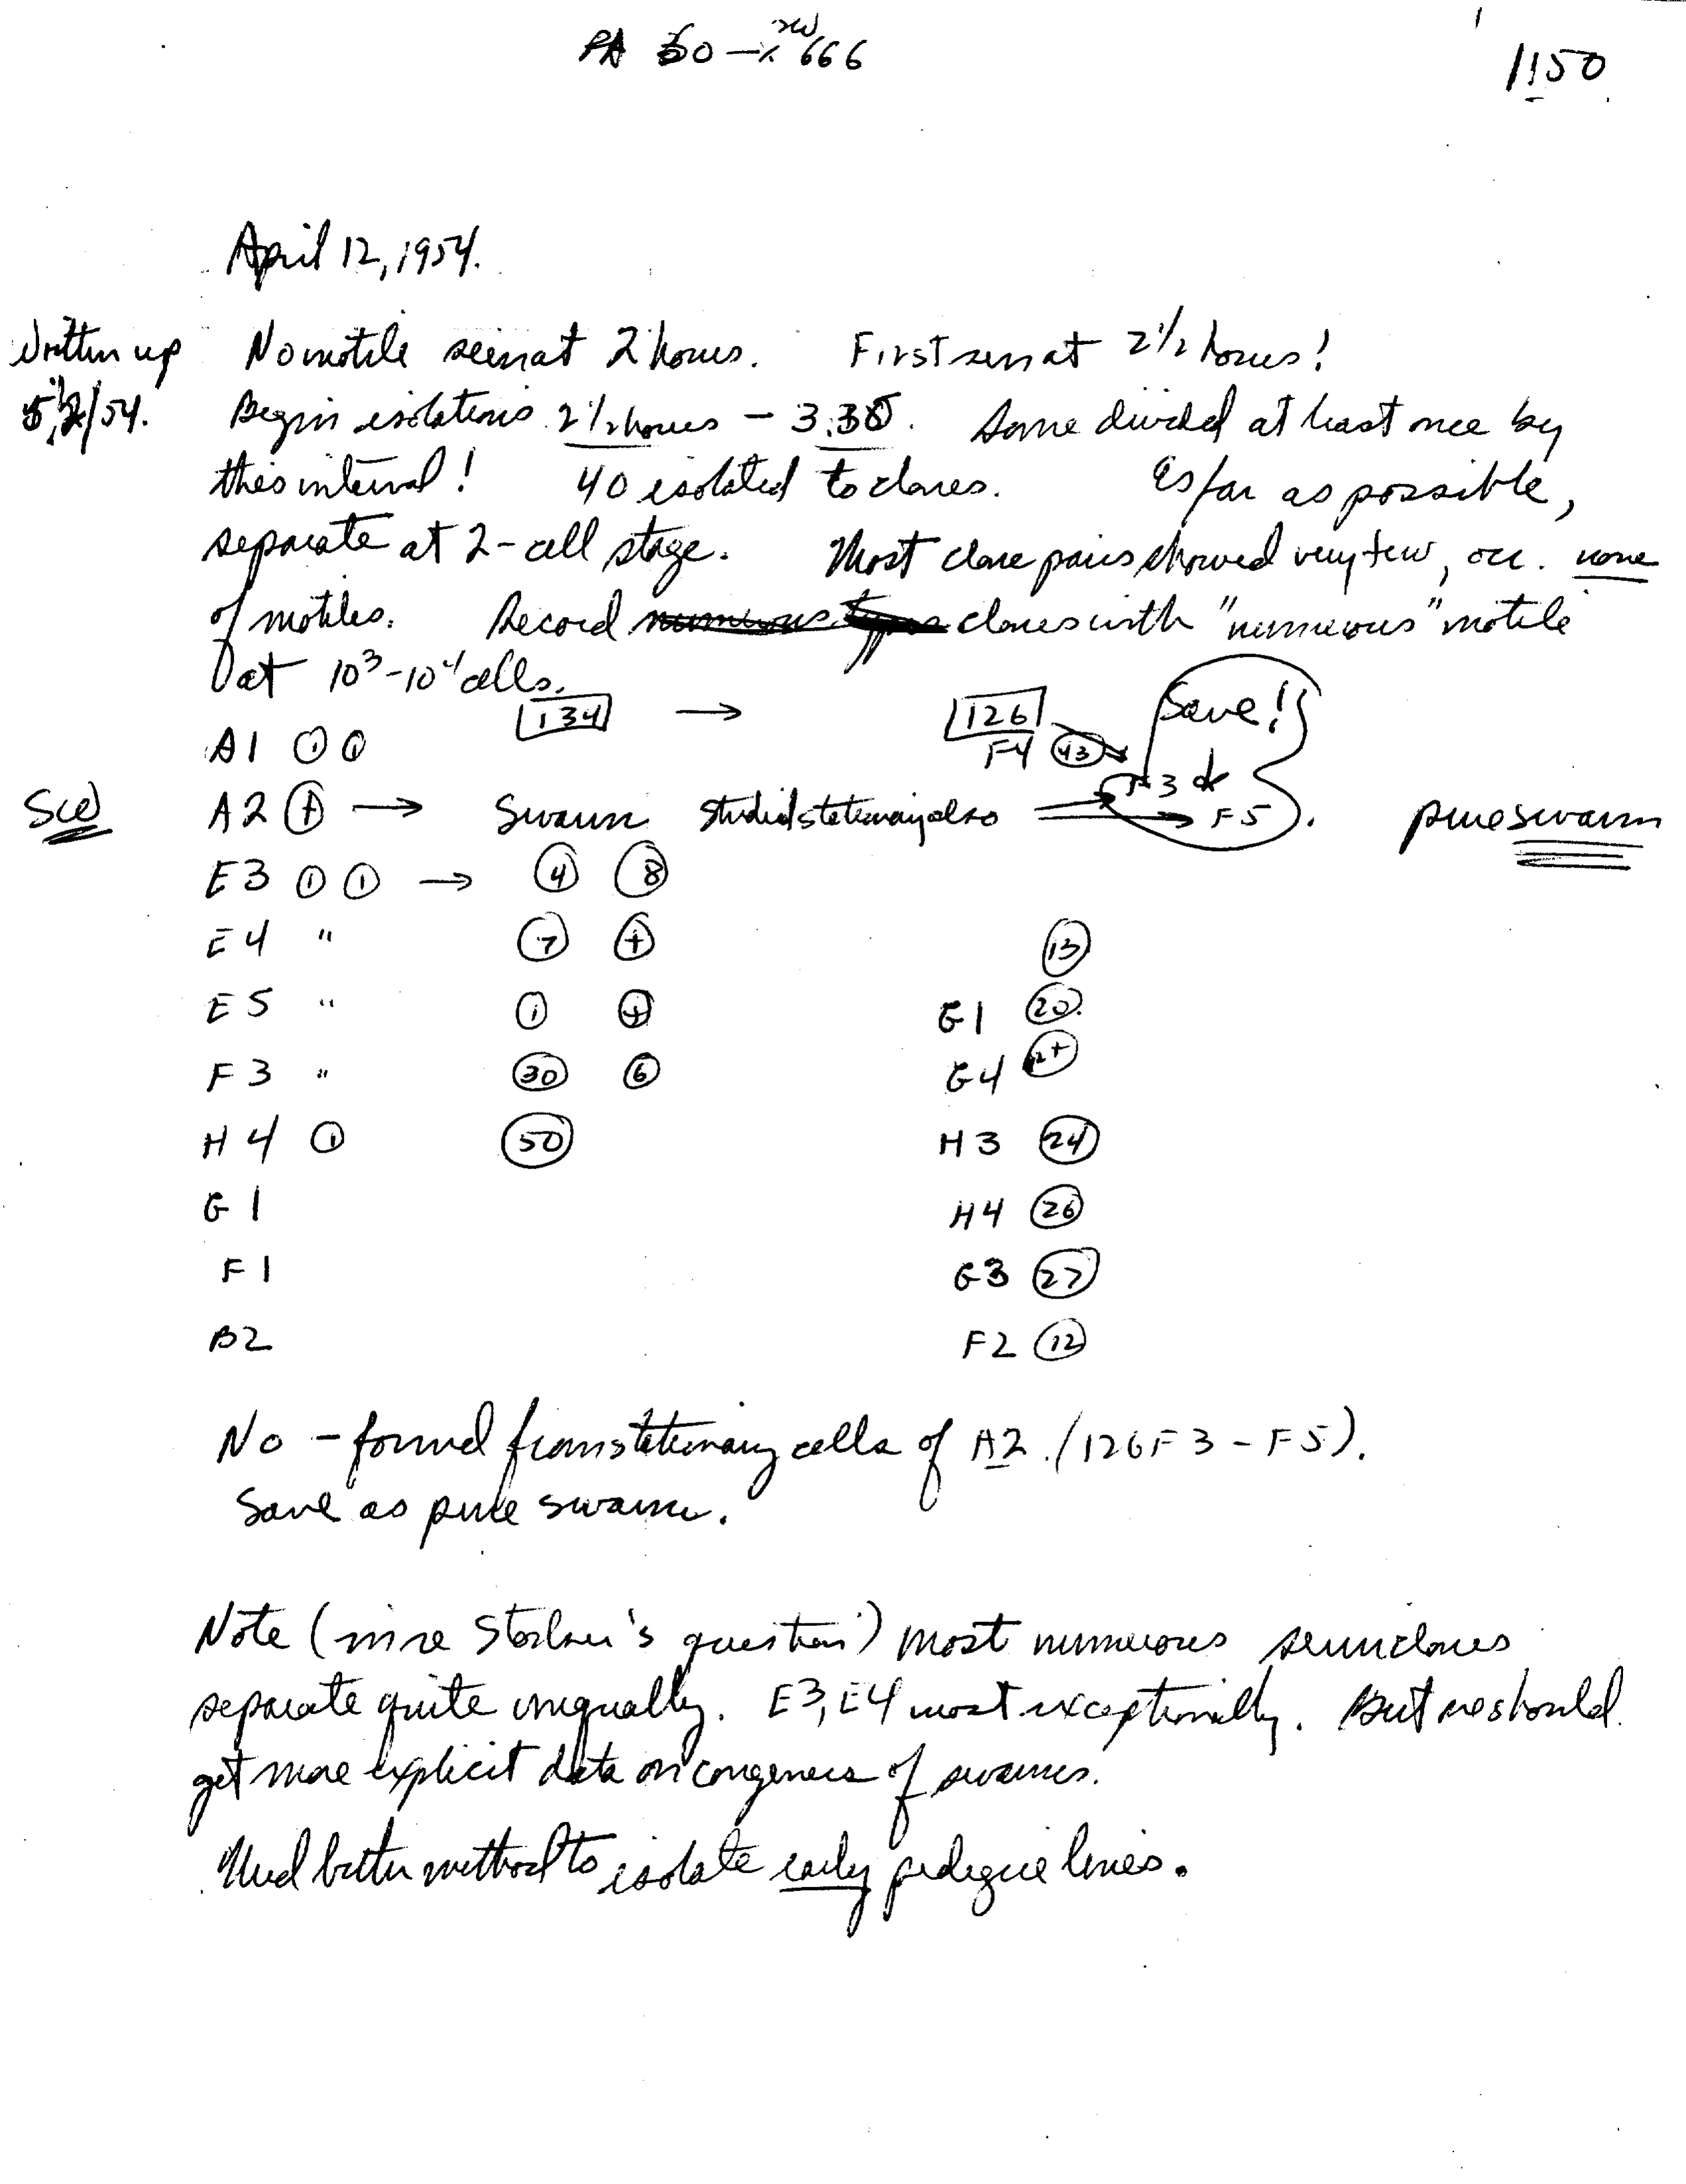 PA 50 —x 666
1150
April 12, 1954.
Written up
No motile seen at 2 hours. First seen at 2 1/2 hours!
Begin isolations 2 1/2 hours – 3.30. Some divided at least once by
this interval! 40 isolated to clones. As far as possible,
separate at 2-cell stage. Most clone pairs showed very few, occ. none
of motiles. Record clones with "numerous" motile
at 10³-10⁴ cells.
134 → 126 Save!
A1 ① ① F4 43
A2 + → Swarm Studied stationary also F3 F5 pure swarm
E3 ① ① → ④ ⑧
E4 " ⑦ + 13
E5 " ① + G1 20
F3 " 30 ⑥ G4
H4 ① 50 H3 24
G1 H4 26
F1 G3 27
B2 F2 12
No – formed from stationary cells of A2. (126F3 – F5).
Save as pure swarm.
Note (in re question) most numerous semiclones
separate quite unequally. E3, E4 most exceptionally. But we should
get more explicit data on congeners of swarms.
Need better method to isolate early pedigree lines.